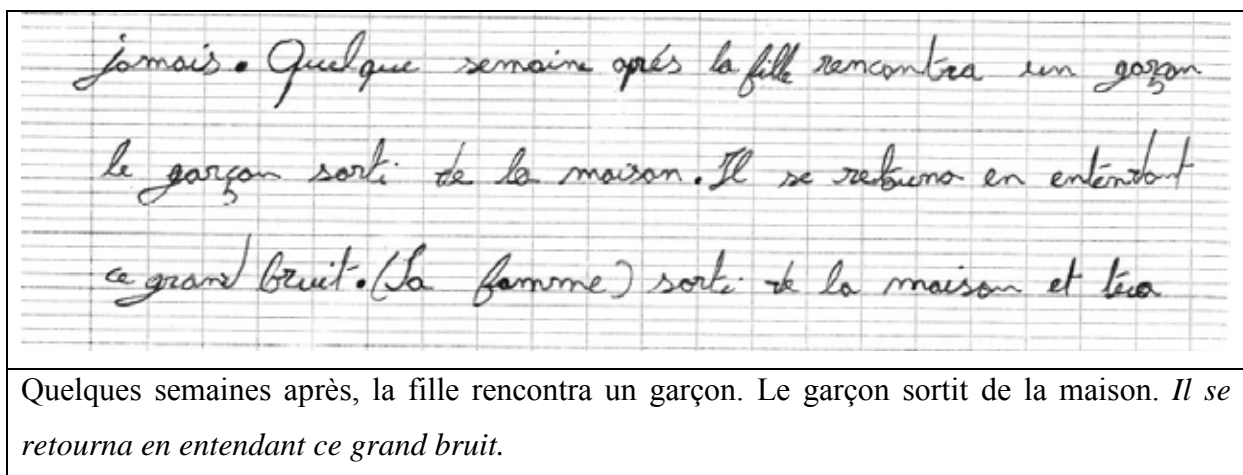 jamais. Quelque semaine aprés la fille rencontra un garçon
le garçon sorti de la maison. Il se retouna en entendant
ce grand bruit. (Sa famme) sorti de la maison et tira
Quelques semaines après, la fille rencontra un garçon. Le garçon sortit de la maison. Il se
retourna en entendant ce grand bruit.